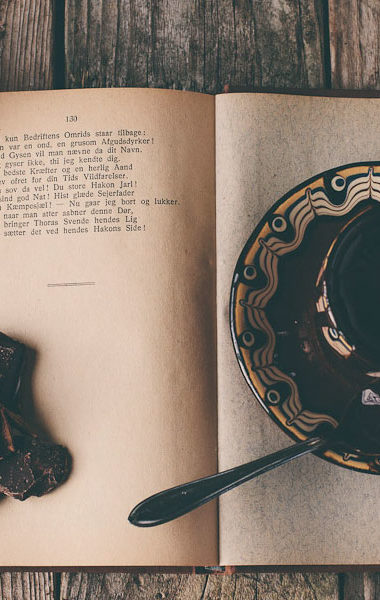 130
kun Bedriftens Omrids staar tilbage:
n var en ond, en grusom Afgudsdyrker!
d Gysen vil man nævne da dit Navn.
gyser ikke, thi jeg kendte dig.
bedste Kræfter og en herlig Aand
ev ofret for din Tids Vildfarelser.
sov da vel! Du store Hakon Jarl!
ind god Nat! Hist glæde Sejerfader
Kæmpesjæl! — Nu gaar jeg bort og lukker.
naar man atter aabner denne Dør,
bringer Thoras Svende hendes Lig
sætter det ved hendes Hakons Side!